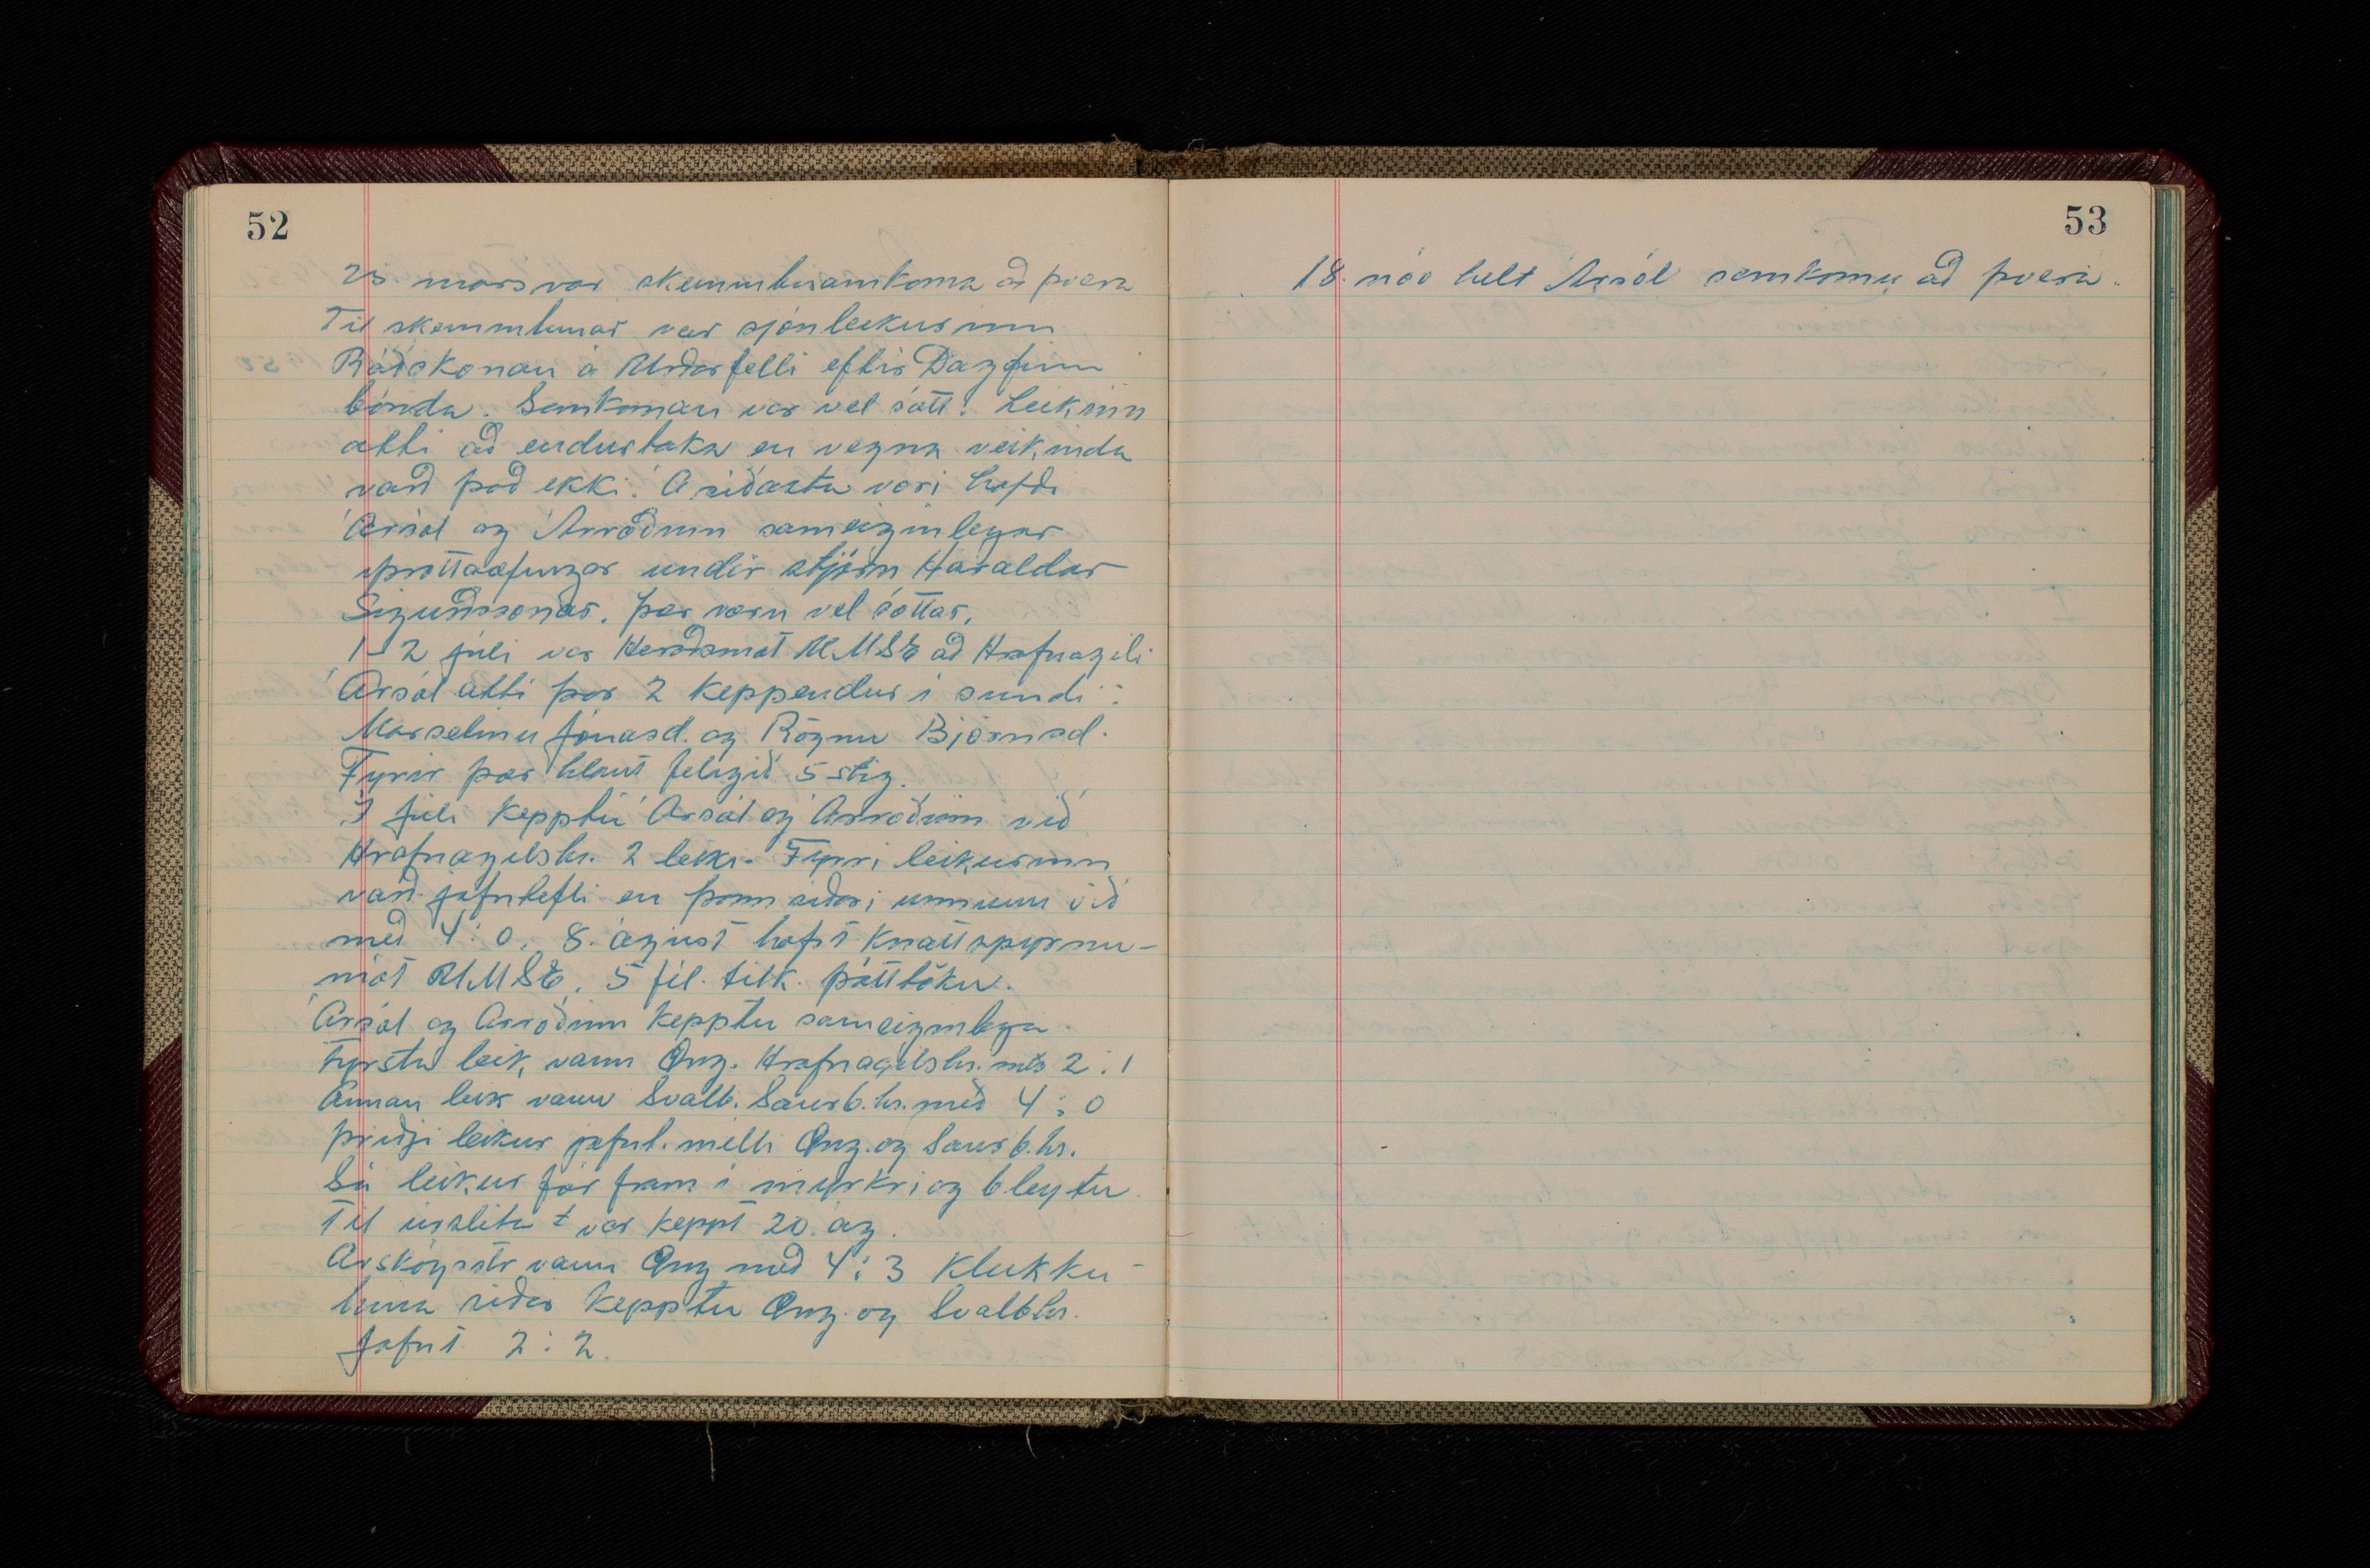 52
25. mars var skemmtisamkoma að þverá
Til skemmtunar var sjónleikurinn
Ráðskonan á Urðarfelli eftir Dagfinn
bónda. Samkoman var vel sótt. Leikinn
átti að endurtaka en vegna veikinda
varð það ekki. Á síðasta vori hafði
Ársól og Árroðinn sameiginlegar
íþróttaæfingar undir stjórn Haraldar
Sigurðssonar. þær voru vel sóttar.
1-2 júlí var Héraðsmót UMSE að Hrafnagili
Ársól átti þar 2 keppendur í sundi:
Marselínu Jónasd. og Rögnu Björnsd.
Fyrir þær hlaut félagið 5 stig.
júlí kepptu Ársól og Árroðinn við
Hrafnagilshr. 2 leiki. Fyrri leikurinn
varð jafntefli en þann síðari unnum við
með 4:0. 8. ágúst hófst knattspyrnu-
mót UMSE. 5 fél. tilk. þátttöku.
Ársól og Árroðinn kepptu sameiginlega.
Fyrsta leik, vann Öng. Hrafnagilshr. með 2:1
Annan leik vann Svalb. Saurb.hr. með 4:0
þriðji leikur jafnt. milli Öng. og Saurb.hr.
Sá leikur fór fram í myrkri og bleytu.
Til úrslita var keppt 20. ág.
Árskógsstr vann Öng með 4:3 Klukku-
tíma síðar kepptu Öng. og Svalbhr.
Jafnt 2:2.
53
18. nóv helt Ársól samkomu að þverá.